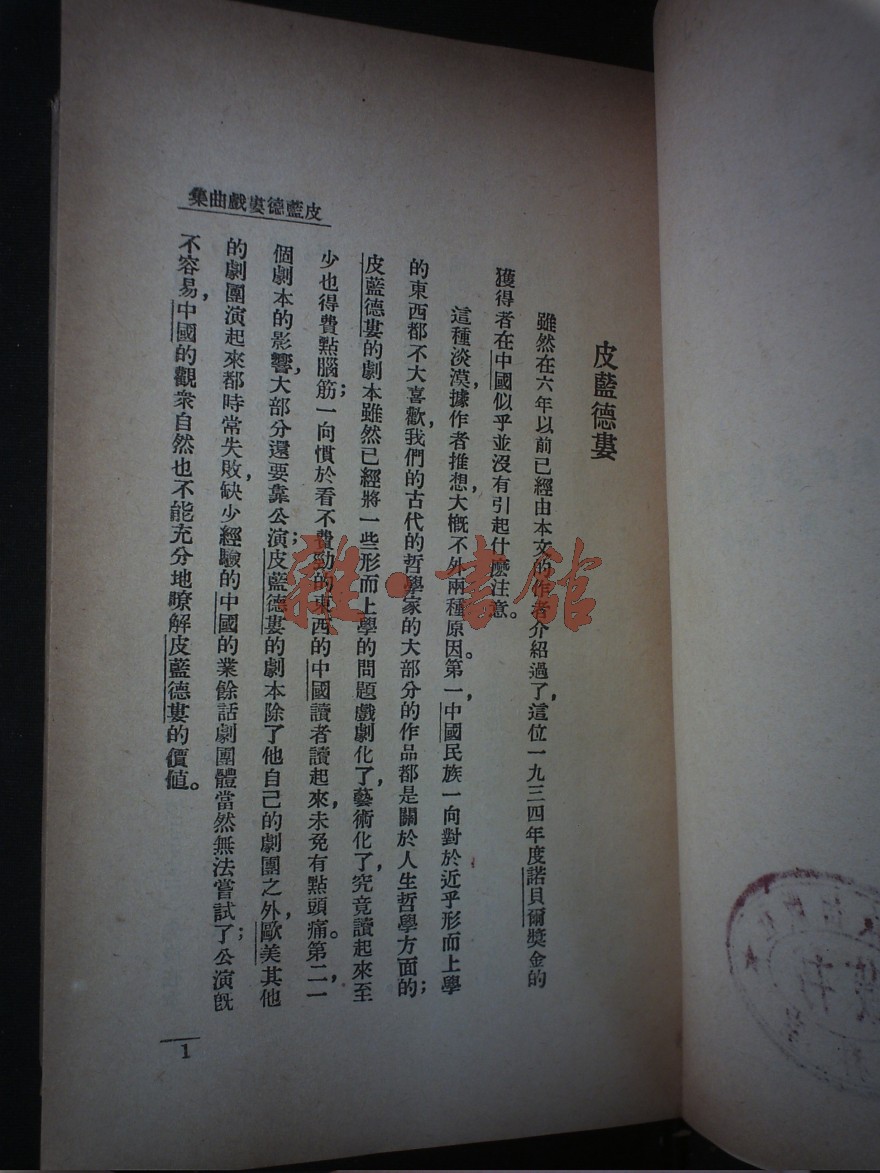 皮藍德婁戲曲集
皮藍德婁
雖然在六年以前已經由本文的作者介紹過了，這位一九三四年度諾貝爾獎金的
獲得者在中國似乎並沒有引起什麼注意。
這種淡漠，據作者推想大概不外兩種原因。第一，中國民族一向對於近乎形而上學
的東西都不大喜歡，我們的古代的哲學家的大部分的作品都是關於人生哲學方面的；
皮藍德婁的劇本雖然已經將一些形而上學的問題戲劇化了，藝術化了，究竟讀起來至
少也得費點腦筋；一向慣於看不費勁的東西的中國讀者讀起來，未免有點頭痛。第二，一
個劇本的影響，大部分還要靠公演；皮藍德婁的劇本除了他自己的劇團之外，歐美其他
的劇團演起來都時常失敗，缺少經驗的中國的業餘話劇團體當然無法嘗試了；公演既
不容易，中國的觀衆自然也不能充分地瞭解皮藍德婁的價值。
1
雜·書館